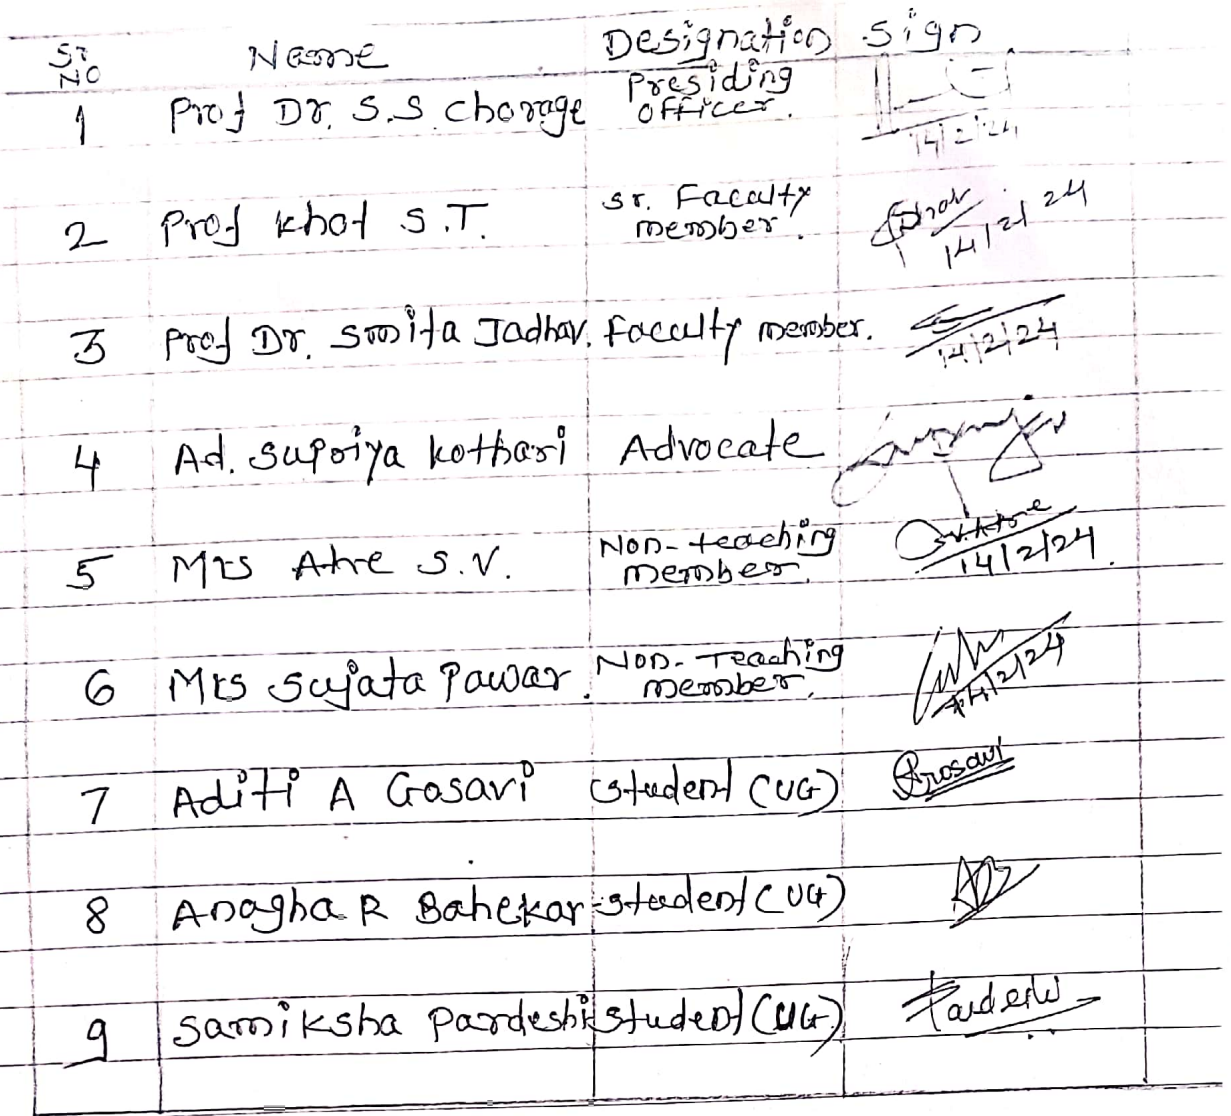 Sr NO Name Designation Sign
1 Prof Dr. S.S. Chorage Presiding officer.
14/2/24
2 Prof Khot S.T. Sr. Faculty member.
14/2/24
3 Prof Dr. Smita Jadhav. Faculty member.
14/2/24
4 Ad. Supriya Kothari Advocate
5 Mrs Atre S.V. Non-teaching member. S.V.Atre
14/2/24.
6 Mrs Sujata Pawar. Non-Teaching member.
14/2/24
7 Aditi A Gosavi Student (UG) Gosavi
8 Anagha R Bahekar Student (UG)
9 Samiksha Pardeshi Student (UG)